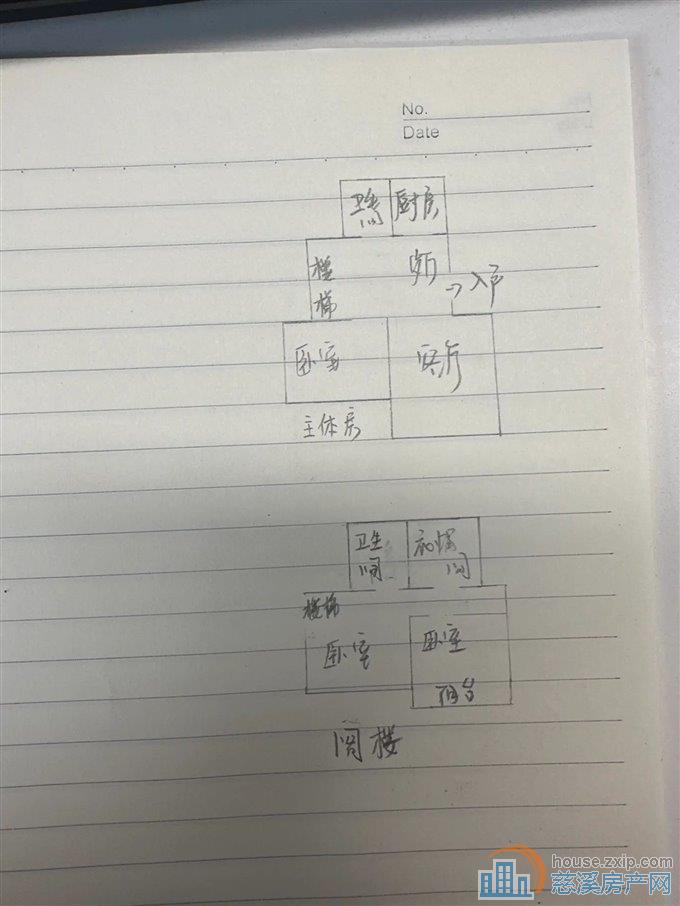 No.
Date
卫生间 厨房
楼梯
餐厅
入户
卧室
客厅
主体房
卫生间
衣帽间
楼梯
卧室
卧室
阳台
阁楼
house.zxip.com
慈溪房产网